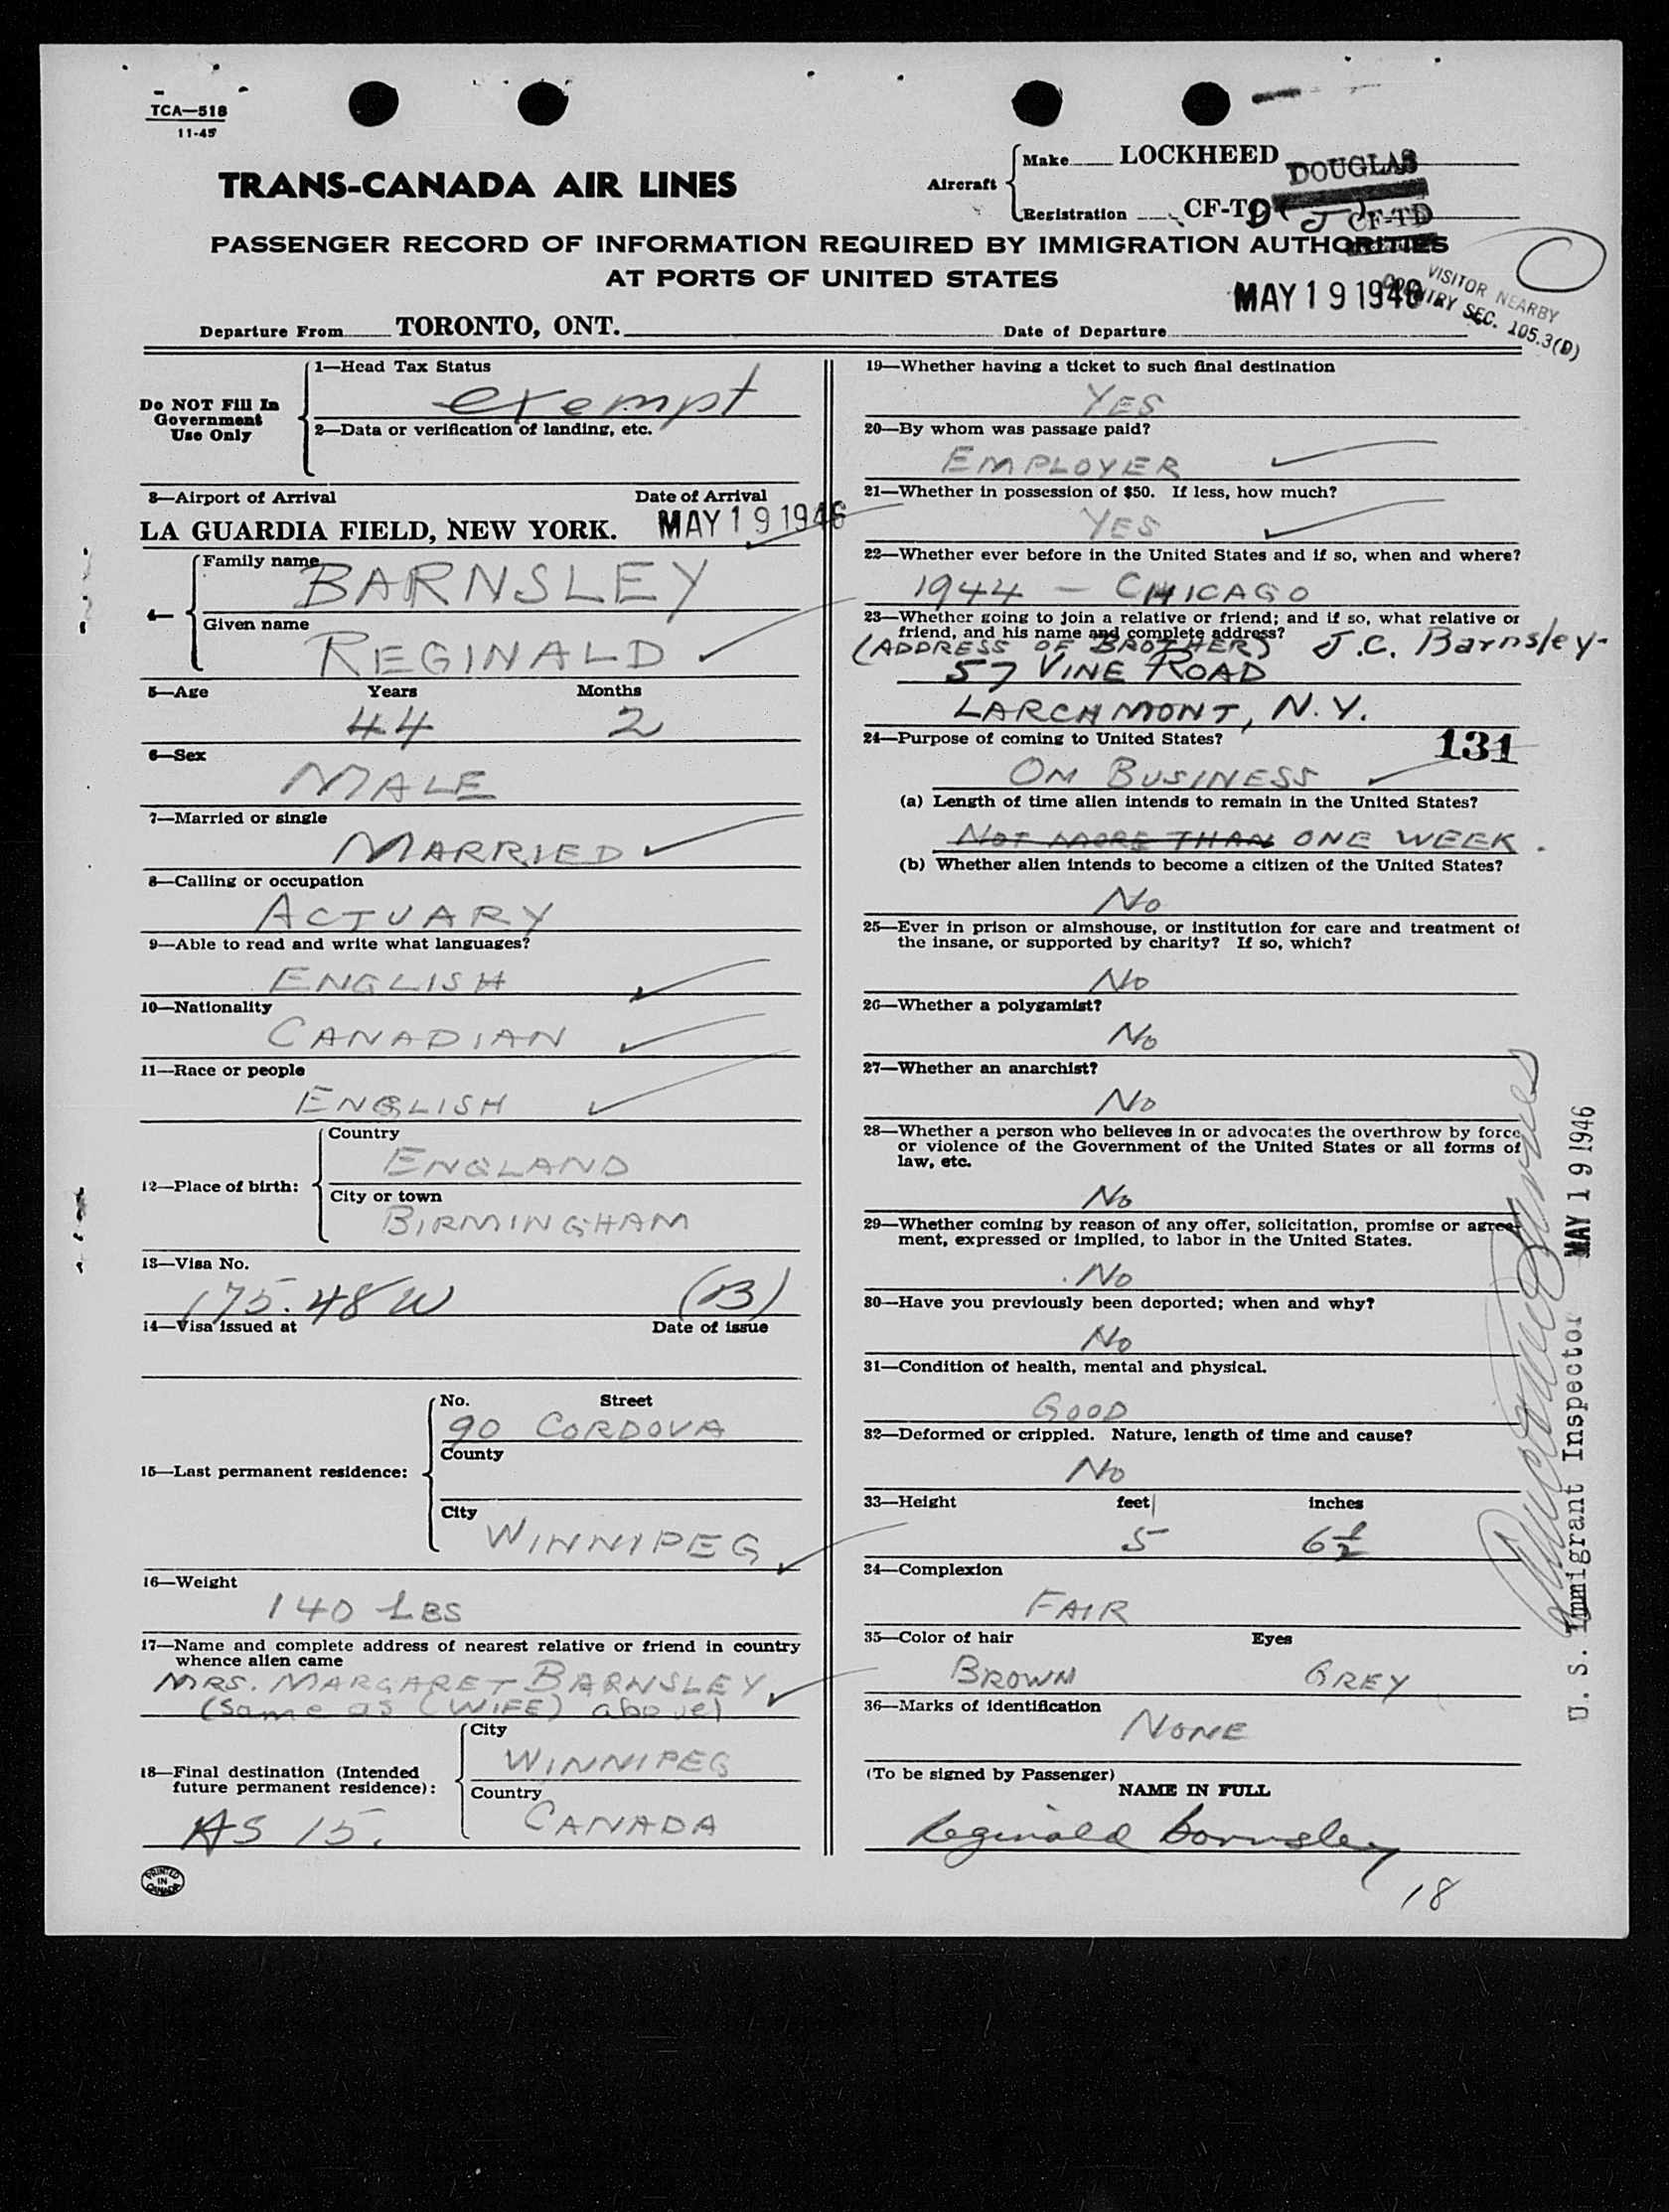 TCA—518
11-45
TRANS-CANADA AIR LINES
Aircraft
Make LOCKHEED DOUGLAS
Registration CF-T D (J) CF-TD
PASSENGER RECORD OF INFORMATION REQUIRED BY IMMIGRATION AUTHORITIES
AT PORTS OF UNITED STATES
VISITOR NEARBY
COUNTRY SEC. 105.3(D)
Departure From TORONTO, ONT. Date of Departure MAY 19 1946
Do NOT Fill In
Government
Use Only
1—Head Tax Status
exempt
2—Data or verification of landing, etc.
3—Airport of Arrival Date of Arrival
LA GUARDIA FIELD, NEW YORK. MAY 19 1946
4—
Family name
BARNSLEY
Given name
REGINALD
5—Age Years Months
44 2
6—Sex
MALE
7—Married or single
MARRIED
8—Calling or occupation
ACTUARY
9—Able to read and write what languages?
ENGLISH
10—Nationality
CANADIAN
11—Race or people
ENGLISH
12—Place of birth:
Country
ENGLAND
City or town
BIRMINGHAM
13—Visa No.
175.48W (B)
14—Visa issued at Date of issue
15—Last permanent residence:
No. Street
90 CORDOVA
County
City
WINNIPEG
16—Weight
140 LBS
17—Name and complete address of nearest relative or friend in country
whence alien came
MRS. MARGARET BARNSLEY
(Same as (WIFE) above)
18—Final destination (Intended
future permanent residence):
AS 15.
City
WINNIPEG
Country
CANADA
PRINTED
IN
CANADA
19—Whether having a ticket to such final destination
YES
20—By whom was passage paid?
EMPLOYER
21—Whether in possession of $50. If less, how much?
YES
22—Whether ever before in the United States and if so, when and where?
1944 — CHICAGO
23—Whether going to join a relative or friend; and if so, what relative or
friend, and his name and complete address?
(ADDRESS OF BROTHER) J.C. Barnsley-
57 VINE ROAD
LARCHMONT, N.Y.
24—Purpose of coming to United States? 131
ON BUSINESS
(a) Length of time alien intends to remain in the United States?
NOT MORE THAN ONE WEEK.
(b) Whether alien intends to become a citizen of the United States?
No
25—Ever in prison or almshouse, or institution for care and treatment of
the insane, or supported by charity? If so, which?
No
26—Whether a polygamist?
No
27—Whether an anarchist?
No
28—Whether a person who believes in or advocates the overthrow by force
or violence of the Government of the United States or all forms of
law, etc.
No
29—Whether coming by reason of any offer, solicitation, promise or agree-
ment, expressed or implied, to labor in the United States.
No
30—Have you previously been deported; when and why?
No
31—Condition of health, mental and physical.
GOOD
32—Deformed or crippled. Nature, length of time and cause?
No
33—Height feet inches
5 6½
34—Complexion
FAIR
35—Color of hair Eyes
BROWN GREY
36—Marks of identification
NONE
(To be signed by Passenger)
NAME IN FULL
Reginald Barnsley
18
U. S. Immigrant Inspector MAY 19 1946